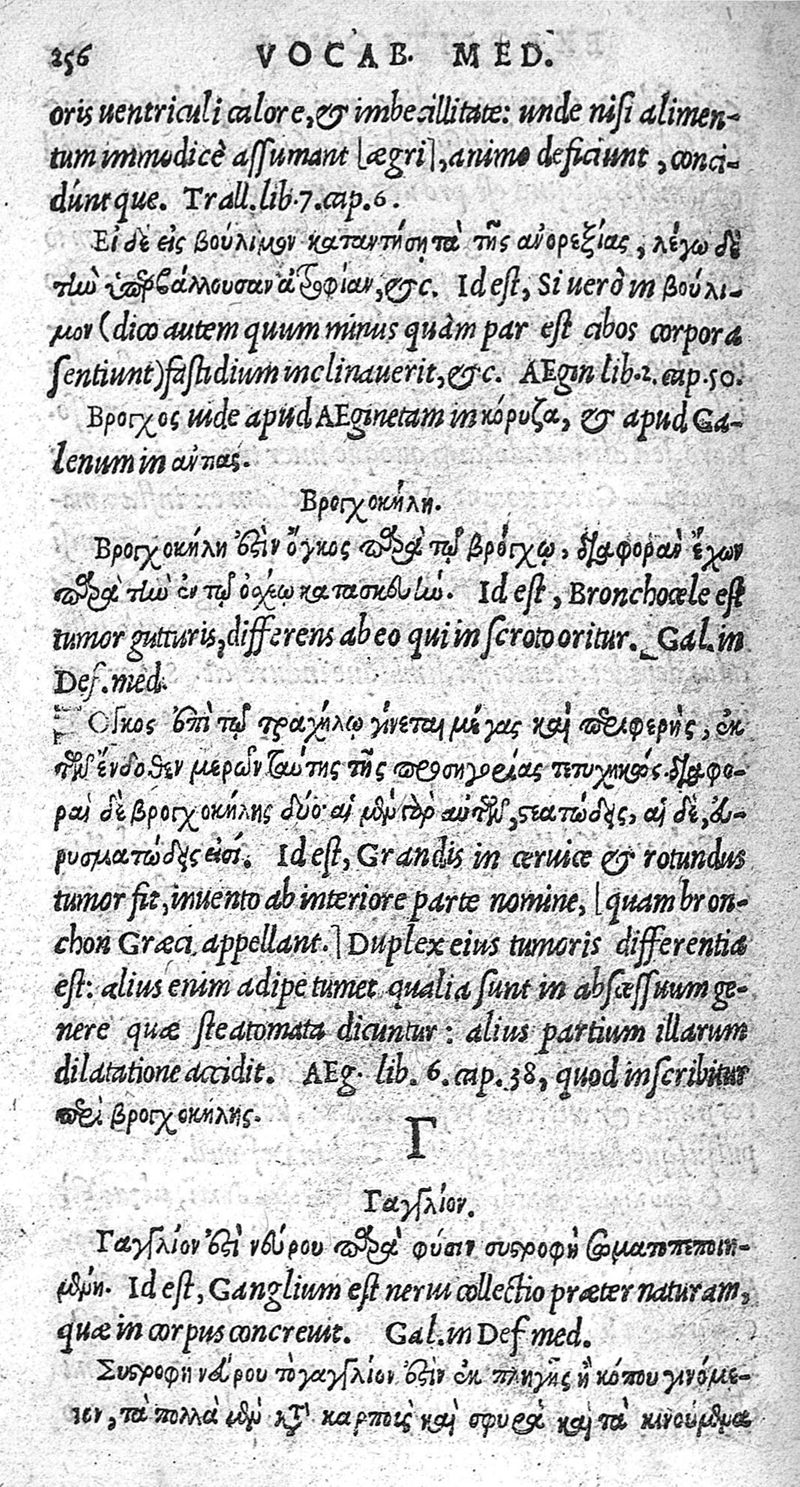 256 VOCAB. MED.
oris uentriculi calore, & imbecillitate: unde nisi alimen-
tum immodicè assumant [ægri], animo deficiunt, conci-
dúntque. Trall. lib. 7. cap. 6.
Εἰ δὲ εἰς βούλιμον καταντήσῃ τὰ τῆς ἀνορεξίας, λέγω δὲ
τὴν ὑπερβάλλουσαν ἀτροφίαν, &c. Id est, Si uerò in βούλι-
μον (dico autem quum minus quàm par est cibos corpora
sentiunt) fastidium inclinauerit, &c. AEgin lib. 2. cap. 50.
Βρογχος uide apud AEginetam in κόρυζα, & apud Ga-
lenum in
Βρογχοκήλη.
Βρογχοκήλη ἐστὶν ὄγκος παρὰ τῷ βρόγχῳ, διαφορὰν ἔχων
παρὰ τὴν ἐν τῷ ὀσχέῳ κατασκευήν. Id est, Bronchocele est
tumor gutturis, differens ab eo qui in scroto oritur. Gal. in
Def. med.
Ὄγκος ἐπὶ τῷ τραχήλῳ γίνεται μέγας καὶ περιφερὴς, ἐκ
τῶν ἔνδοθεν μερῶν ταύτης τῆς προσηγορίας τετυχηκώς. διαφο-
ραὶ δὲ βρογχοκήλης δύο· αἱ μὲν γὰρ αὐτῶν, στεατώδεις, αἱ δὲ, ἀνευ-
ρυσματώδεις εἰσί. Id est, Grandis in ceruice & rotundus
tumor fit, inuento ab interiore parte nomine, [quam bron-
chon Græci appellant.] Duplex eius tumoris differentia
est: alius enim adipe tumet qualia sunt in abscessuum ge-
nere quæ steatomata dicuntur: alius partium illarum
dilatatione accidit. AEg. lib. 6. cap. 38, quod inscribitur
περὶ βρογχοκήλης.
Γ
Γαγγλίον.
Γαγγλίον ἐστὶ νεύρου παρὰ φύσιν συστροφὴ σωματοπεποιη-
μένη. Id est, Ganglium est nerui collectio præter naturam,
quæ in corpus concreuit. Gal. in Def med.
Συστροφὴ νεύρου τὸ γαγγλίον ἐστὶν ἐκ πληγῆς ἢ κόπου γινόμε-
νον, τὰ πολλὰ μὲν κατὰ καρποὺς καὶ σφυρὰ καὶ τὰ κινούμενα